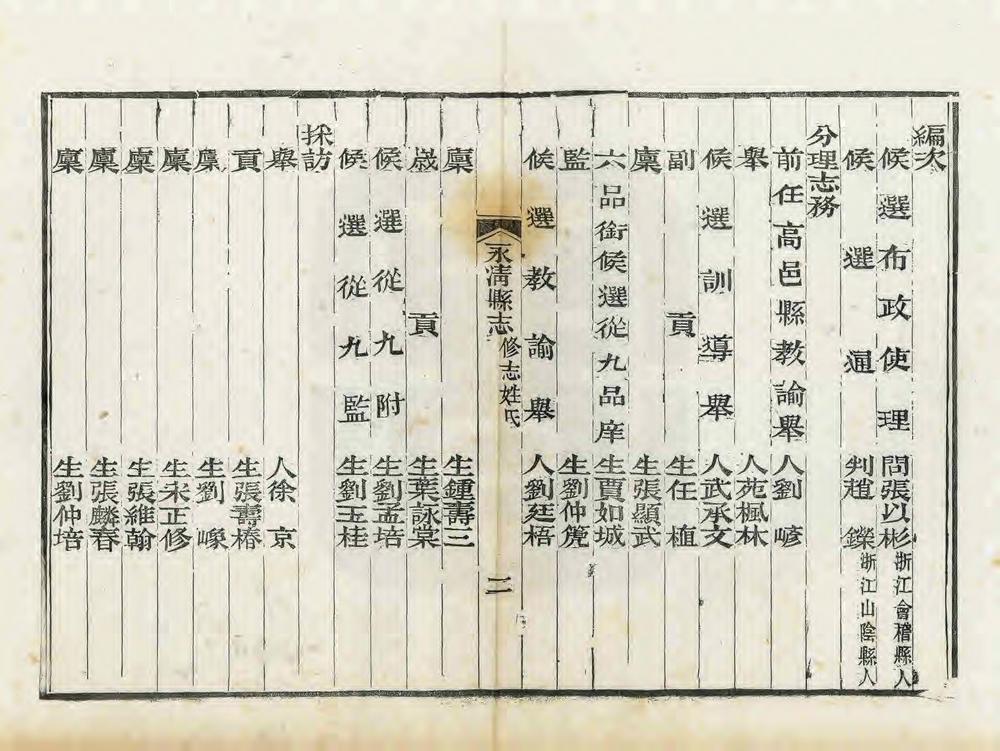 編次
候選布政使理問張以彬浙江會稽縣人
候選通判趙鑠浙江山陰縣人
分理志務
前任高邑縣教諭舉人劉嵃
舉人苑楓林
候選訓導舉人武承文
副貢生任植
廩生張顯武
六品銜候選從九品庠生賈如城
監生劉仲篪
候選教諭舉人劉廷梧
永清縣志 修志姓氏 二
廩生鍾壽三
歲貢生葉詠棠
候選從九附生劉孟培
候選從九監生劉玉桂
採訪
舉人徐京
貢生張壽椿
廩生劉嵺
廩生宋正修
廩生張維翰
廩生張麟春
廩生劉仲培